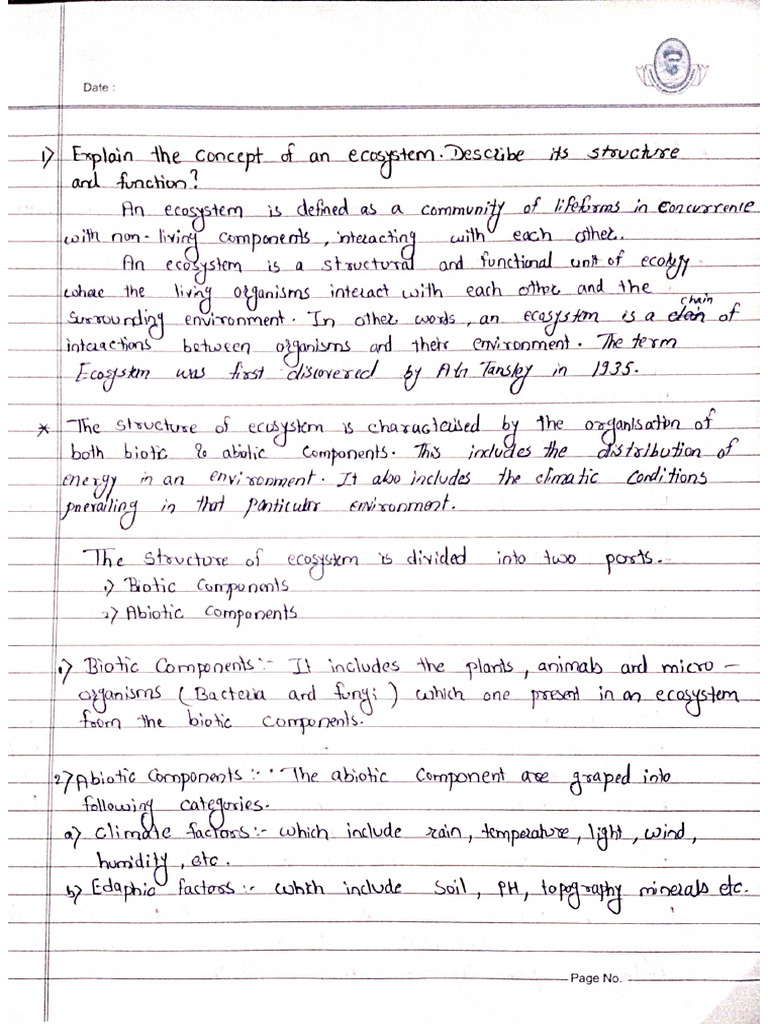 Date :
1) Explain the concept of an ecosystem. Describe its structure
and function?
An ecosystem is defined as a community of lifeforms in concurrence
with non-living components, interacting with each other.
An ecosystem is a structural and functional unit of ecology
where the living organisms interact with each other and the
surrounding environment. In other words, an ecosystem is a chain of
interactions between organisms and their environment. The term
Ecosystem was first discovered by A.G Tansley in 1935.
* The structure of ecosystem is characterised by the organisation of
both biotic & abiotic components. This includes the distribution of
energy in an environment. It also includes the climatic conditions
prevailing in that particular environment.
The structure of ecosystem is divided into two parts.
1) Biotic Components
2) Abiotic Components
1) Biotic Components:- It includes the plants, animals and micro-
organisms (Bacteria and fungi) which one present in an ecosystem
from the biotic components.
2) Abiotic Components:- The abiotic component are graped into
following categories.
a) Climate factors:- which include rain, temperature, light, wind,
humidity, etc.
b) Edaphic factors:- whth include soil, PH, topography minerals etc.
Page No.